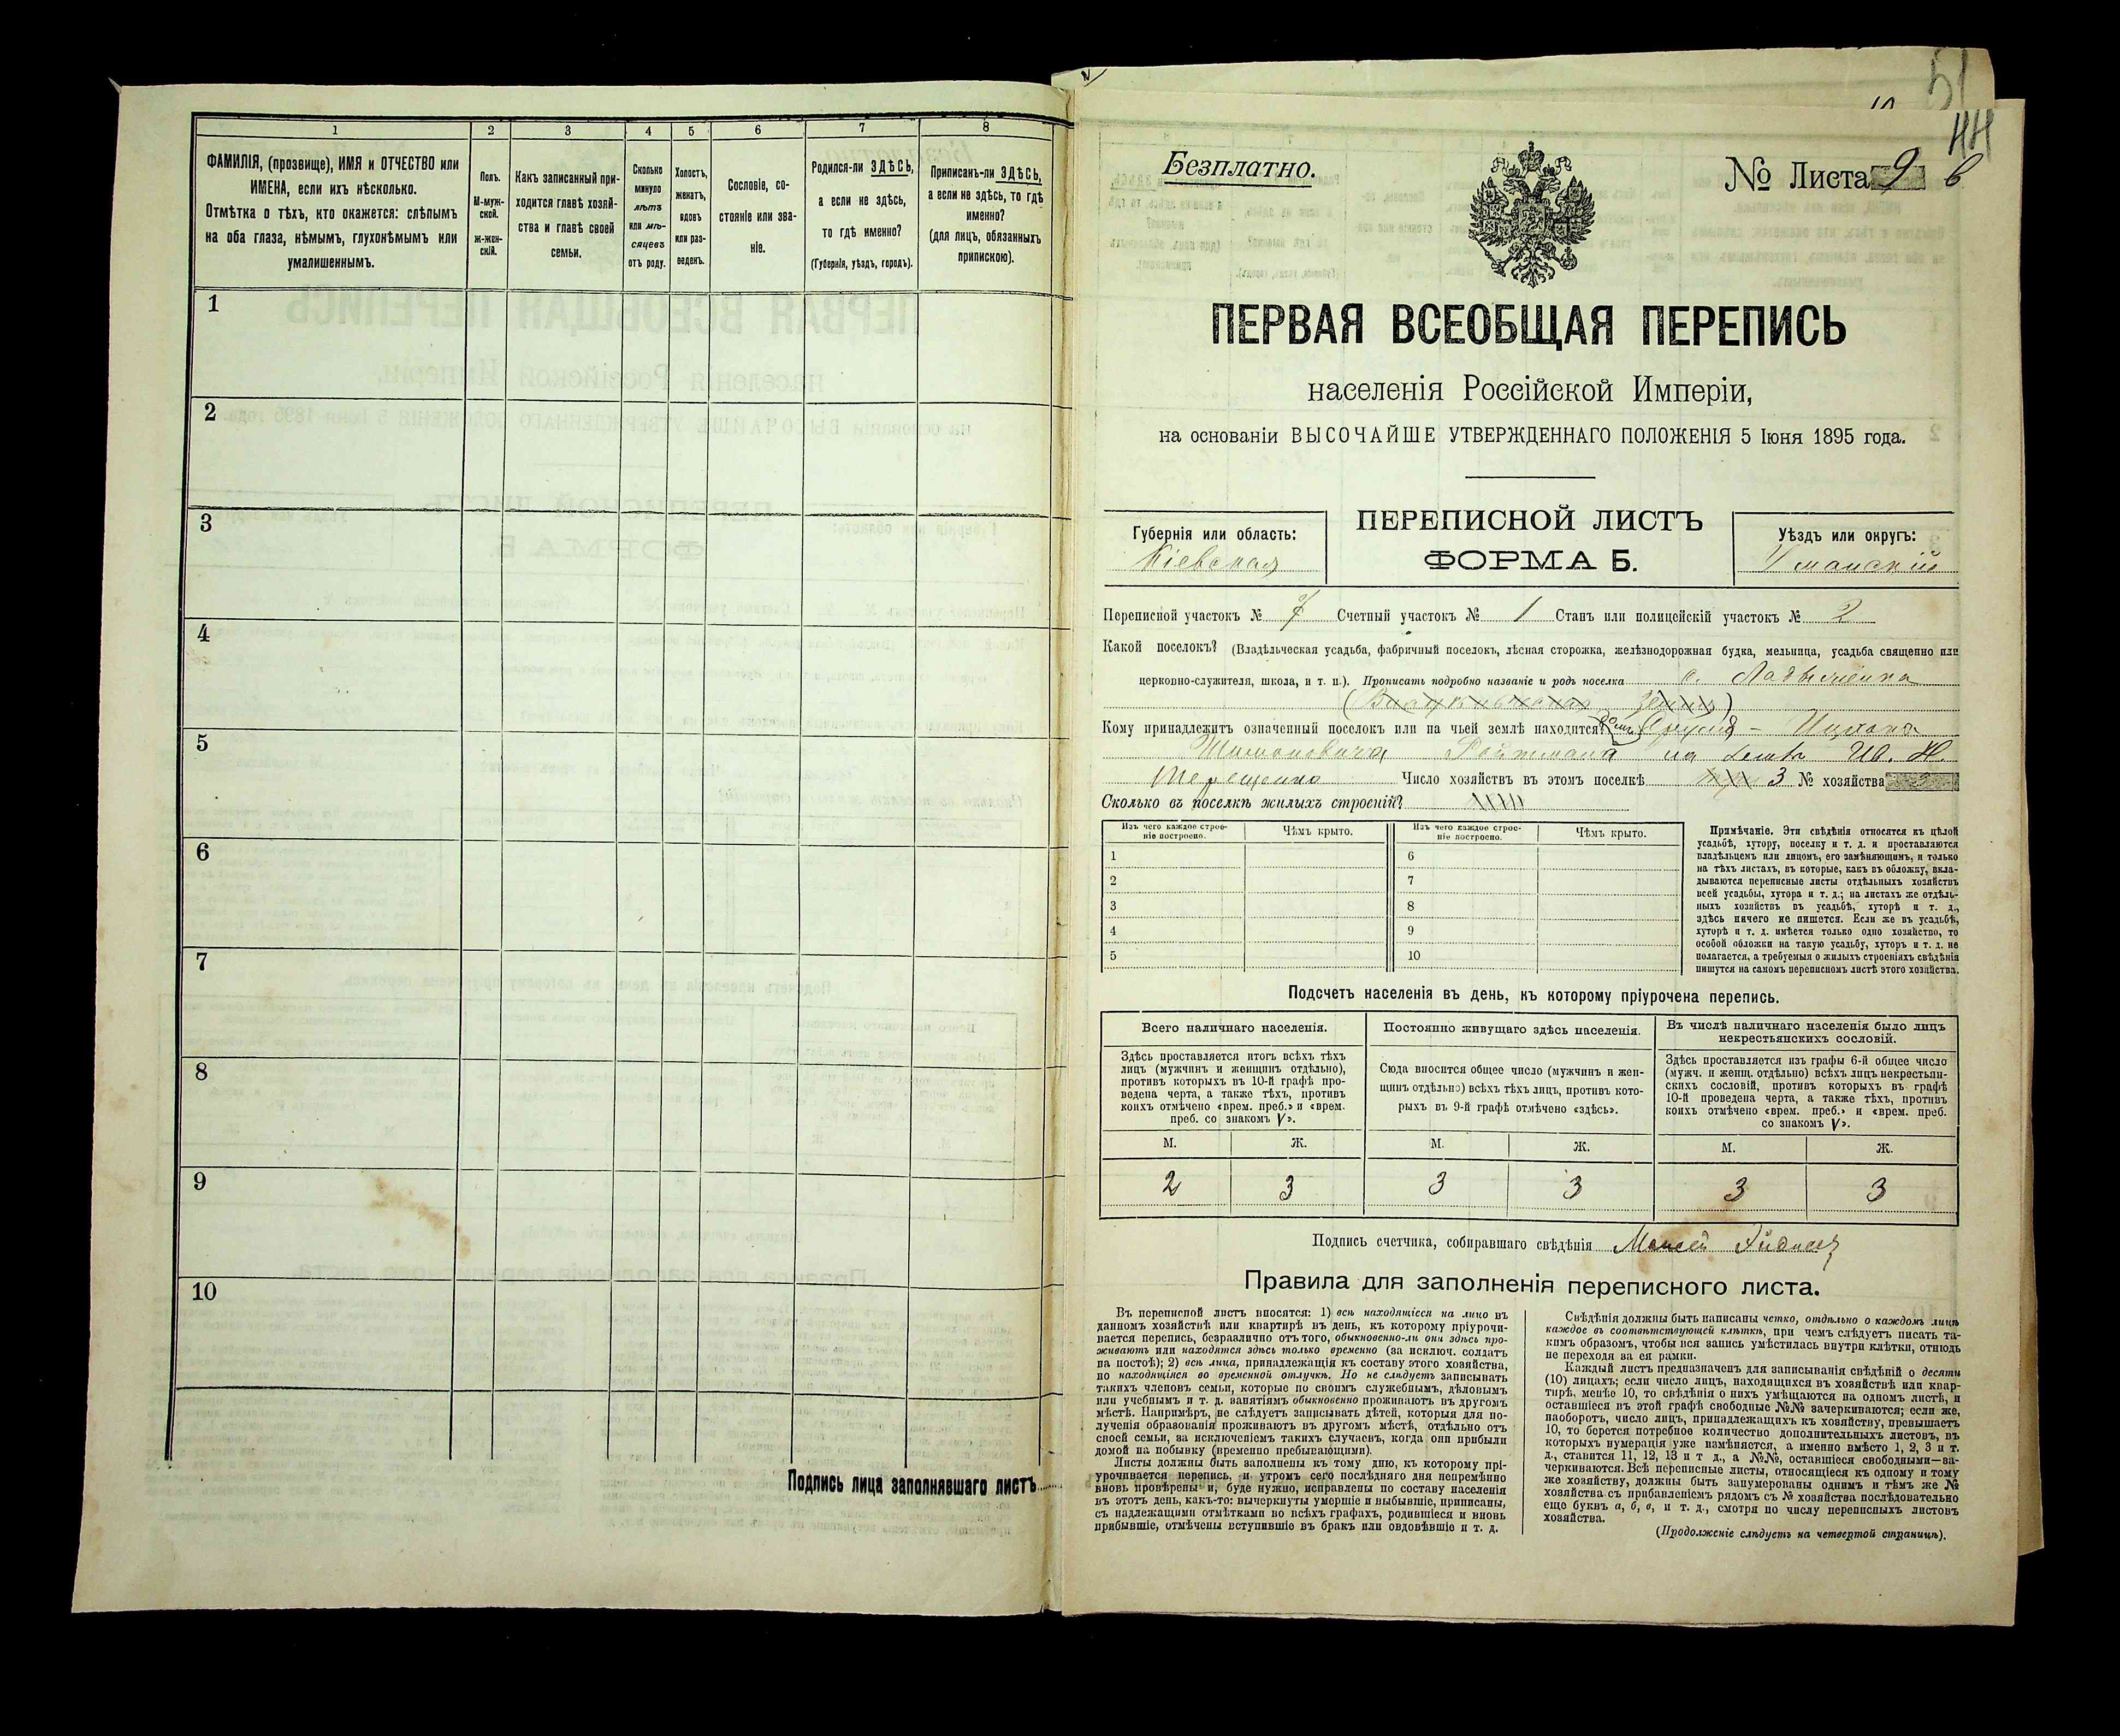 1
2
3
4
5
6
7
8
ФАМИЛІЯ, (прозвище), ИМЯ и ОТЧЕСТВО или
ИМЕНА, если ихъ нѣсколько.
Отмѣтка о тѣхъ, кто окажется: слѣпымъ
на оба глаза, нѣмымъ, глухонѣмымъ или
умалишеннымъ.
Полъ.
М-муж-
ской.
ж-жен-
скій.
Какъ записанный при-
ходится главѣ хозяй-
ства и главѣ своей
семьи.
Сколько
минуло
лѣтъ
или мѣ-
сяцевъ
отъ роду.
Холостъ,
женатъ,
вдовъ
или раз-
веденъ.
Сословіе, со-
стояніе или зва-
ніе.
Родился-ли ЗДѢСЬ,
а если не здѣсь,
то гдѣ именно?
(Губернія, уѣздъ, городъ).
Приписанъ-ли ЗДѢСЬ,
а если не здѣсь, то гдѣ
именно?
(для лицъ, обязанныхъ
припискою).
1
2
3
4
5
6
7
8
9
10
Подпись лица заполнявшаго листъ
51
44
Безплатно.
№ Листа 9 в
ПЕРВАЯ ВСЕОБЩАЯ ПЕРЕПИСЬ
населенія Россійской Имперіи,
на основаніи ВЫСОЧАЙШЕ УТВЕРЖДЕННАГО ПОЛОЖЕНІЯ 5 Іюня 1895 года.
Губернія или область:
Кіевская
ПЕРЕПИСНОЙ ЛИСТЪ
ФОРМА Б.
Уѣздъ или округъ:
Уманскій
Переписной участокъ № 7 Счетный участокъ № 1 Станъ или полицейскій участокъ № 2
Какой поселокъ? (Владѣльческая усадьба, фабричный поселокъ, лѣсная сторожка, желѣзнодорожная будка, мельница, усадьба священно или
церковно-служителя, школа, и т. п.). Прописать подробно названіе и родъ поселка с. Ладыжинка
Кому принадлежитъ означенный поселокъ или на чьей землѣ находится?
на землѣ Ив. Н.
Терещенко Число хозяйствъ въ этомъ поселкѣ 3 № хозяйства 3
Сколько въ поселкѣ жилыхъ строеній?
Изъ чего каждое строе-
ніе построено.
Чѣмъ крыто.
Изъ чего каждое строе-
ніе построено.
Чѣмъ крыто.
1
2
3
4
5
6
7
8
9
10
Примѣчаніе. Эти свѣдѣнія относятся къ цѣлой
усадьбѣ, хутору, поселку и т. д. и проставляются
владѣльцемъ или лицомъ, его замѣняющимъ, и только
на тѣхъ листахъ, въ которые, какъ въ обложку, вкла-
дываются переписные листы отдѣльныхъ хозяйствъ
всей усадьбы, хутора и т. д.; на листахъ же отдѣль-
ныхъ хозяйствъ въ усадьбѣ, хуторѣ и т. д.,
здѣсь ничего не пишется. Если же въ усадьбѣ,
хуторѣ и т. д. имѣется только одно хозяйство, то
особой обложки на такую усадьбу, хуторъ и т. д. не
полагается, а требуемыя о жилыхъ строеніяхъ свѣдѣнія
пишутся на самомъ переписномъ листѣ этого хозяйства.
Подсчетъ населенія въ день, къ которому пріурочена перепись.
Всего наличнаго населенія.
Здѣсь проставляется итогъ всѣхъ тѣхъ
лицъ (мужчинъ и женщинъ отдѣльно),
противъ которыхъ въ 10-й графѣ про-
ведена черта, а также тѣхъ, противъ
коихъ отмѣчено «врем. преб.» и «врем.
преб. со знакомъ V».
Постоянно живущаго здѣсь населенія.
Сюда вносится общее число (мужчинъ и жен-
щинъ отдѣльно) всѣхъ тѣхъ лицъ, противъ кото-
рыхъ въ 9-й графѣ отмѣчено «здѣсь».
Въ числѣ наличнаго населенія было лицъ
некрестьянскихъ сословій.
Здѣсь проставляется изъ графы 6-й общее число
(мужч. и женщ. отдѣльно) всѣхъ лицъ некрестьян-
скихъ сословій, противъ которыхъ въ графѣ
10-й проведена черта, а также тѣхъ, противъ
коихъ отмѣчено «врем. преб.» и «врем. преб.
со знакомъ V».
М. Ж. М. Ж. М. Ж.
2 3 3 3 3 3
Подпись счетчика, собиравшаго свѣдѣнія Моисей
Правила для заполненія переписного листа.
Въ переписной листъ вносятся: 1) всѣ находящіеся на лицо въ
данномъ хозяйствѣ или квартирѣ въ день, къ которому пріурочи-
вается перепись, безразлично отъ того, обыкновенно-ли они здѣсь про-
живаютъ или находятся здѣсь только временно (за исключ. солдатъ
на постоѣ); 2) всѣ лица, принадлежащія къ составу этого хозяйства,
но находящіяся во временной отлучкѣ. Но не слѣдуетъ записывать
такихъ членовъ семьи, которые по своимъ служебнымъ, дѣловымъ
или учебнымъ и т. д. занятіямъ обыкновенно проживаютъ въ другомъ
мѣстѣ. Напримѣръ, не слѣдуетъ записывать дѣтей, которыя для по-
лученія образованія проживаютъ въ другомъ мѣстѣ, отдѣльно отъ
своей семьи, за исключеніемъ такихъ случаевъ, когда они прибыли
домой на побывку (временно пребывающими).
Листы должны быть заполнены къ тому дню, къ которому прі-
урочивается перепись, и утромъ сего послѣдняго дня непремѣнно
вновь провѣрены и, буде нужно, исправлены по составу населенія
въ этотъ день, какъ-то: вычеркнуты умершіе и выбывшіе, приписаны,
съ надлежащими отмѣтками во всѣхъ графахъ, родившіеся и вновь
прибывшіе, отмѣчены вступившіе въ бракъ или овдовѣвшіе и т. д.
Свѣдѣнія должны быть написаны четко, отдѣльно о каждомъ лицѣ
каждое въ соотвѣтствующей клѣткѣ, при чемъ слѣдуетъ писать та-
кимъ образомъ, чтобы вся запись умѣстилась внутри клѣтки, отнюдь
не переходя за ея рамки.
Каждый листъ предназначенъ для записыванія свѣдѣній о десяти
(10) лицахъ; если число лицъ, находящихся въ хозяйствѣ или квар-
тирѣ, менѣе 10, то свѣдѣнія о нихъ умѣщаются на одномъ листѣ, и
оставшіеся въ этой графѣ свободные №№ зачеркиваются; если же,
наоборотъ, число лицъ, принадлежащихъ къ хозяйству, превышаетъ
10, то берется потребное количество дополнительныхъ листовъ, въ
которыхъ нумерація уже измѣняется, а именно вмѣсто 1, 2, 3 и т.
д., ставится 11, 12, 13 и т д., а №№, оставшіеся свободными—за-
черкиваются. Всѣ переписные листы, относящіеся къ одному и тому
же хозяйству, должны быть занумерованы однимъ и тѣмъ же №
хозяйства съ прибавленіемъ рядомъ съ № хозяйства послѣдовательно
еще буквъ а, б, в, и т. д., смотря по числу переписныхъ листовъ
хозяйства.
(Продолженіе слѣдуетъ на четвертой страницѣ).